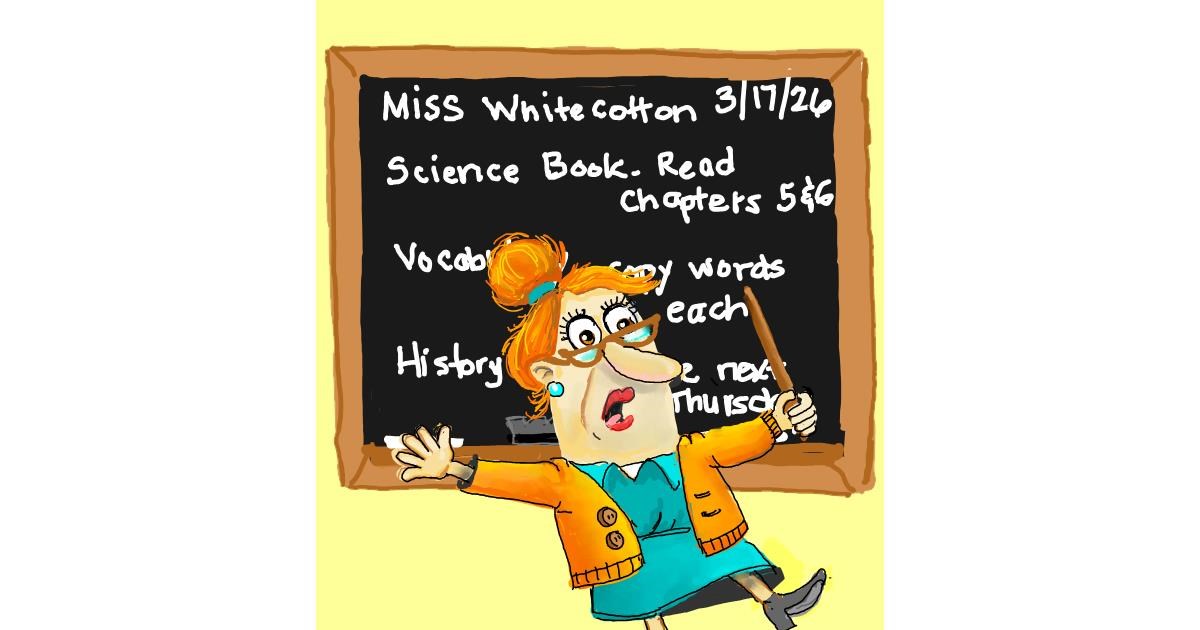 Miss Whitecotton 3/17/26
Science Book. Read
Chapters 5&6
copy words
each
History
next